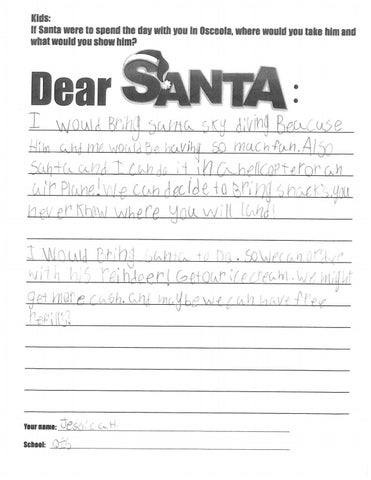 Kids:
If Santa were to spend the day with you in Osceola, where would you take him and
what would you show him?
Dear SANTA:
I would Bring santa sky diving Beacuse
Him and me would Be having so much fun. Also
Santa and I can do it in a helicopter or an
airplane! We can decide to Bring snacks, you
never know where you will land!
I would Bring santa to DQ. So we can
with his reindeer! Get our ice cream. We might
get more cash. and maybe we can have free
refills?
Your name: Jessica H.
School: